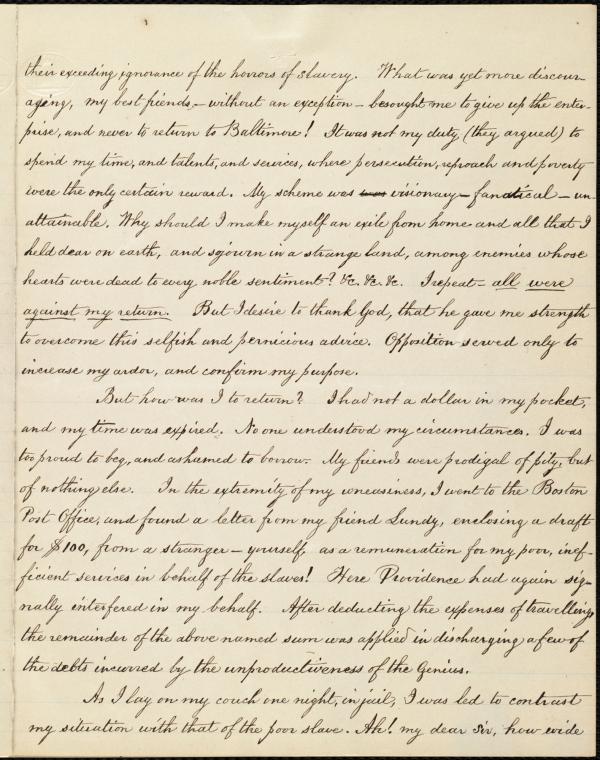 their exceeding ignorance of the horrors of slavery. What was yet more discour-
aging, my best friends, – without an exception – besought me to give up the enter-
prise, and never to return to Baltimore! It was not my duty (they argued) to
spend my time, and talents, and services, where persecution, reproach and poverty
were the only certain reward. My scheme was visionary – fanatical – un-
attainable. Why should I make myself an exile from home and all that I
held dear on earth, and sojourn in a strange land, among enemies whose
hearts were dead to every noble sentiment? &c. &c. &c. I repeat – all were
against my return. But I desire to thank God, that he gave me strength
to overcome this selfish and pernicious advice. Opposition served only to
increase my ardor, and confirm my purpose.
But how was I to return? I had not a dollar in my pocket,
and my time was expired. No one understood my circumstances. I was
too proud to beg, and ashamed to borrow. My friends were prodigal of pity, but
of nothing else. In the extremity of my uneasiness, I went to the Boston
Post Office, and found a letter from my friend Lundy, enclosing a draft
for $100, from a stranger – yourself, as a remuneration for my poor, inef-
ficient services in behalf of the slaves! Here Providence had again sig-
nally interfered in my behalf. After deducting the expenses of travelling,
the remainder of the above named sum was applied in discharging a few of
the debts incurred by the unproductiveness of the Genius.
As I lay on my couch one night, in jail, I was led to contrast
my situation with that of the poor slave. Ah! my dear Sir, how wide